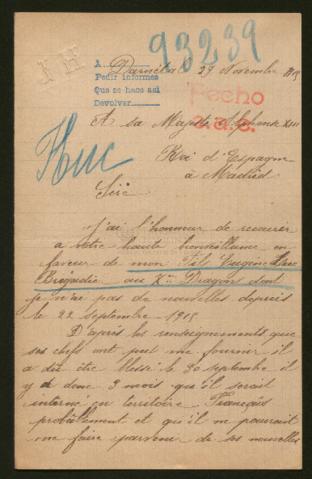 93239
A
Pedir informes
Que se hace así
Devolver
Darnétal 29 Novembre
Hecho
A sa Majesté Alphonse XIII
Roi d'Espagne
à Madrid
Huc
Sire
J'ai l'honneur de recourir
a votre haute bienveillance en
faveur de mon Fils Eugène Huc
Brigadier au 7me Dragons dont
je n'ai pas de nouvelles depuis
le 22 septembre 1915
D'après les renseignements que
ses chefs ont put me fournir il
a dû être blessé le 20 septembre il
y a donc 3 mois qu'il serait
interné en territoire Français
probablement et qu'il ne pourrait
me faire parvenir de ses nouvelles